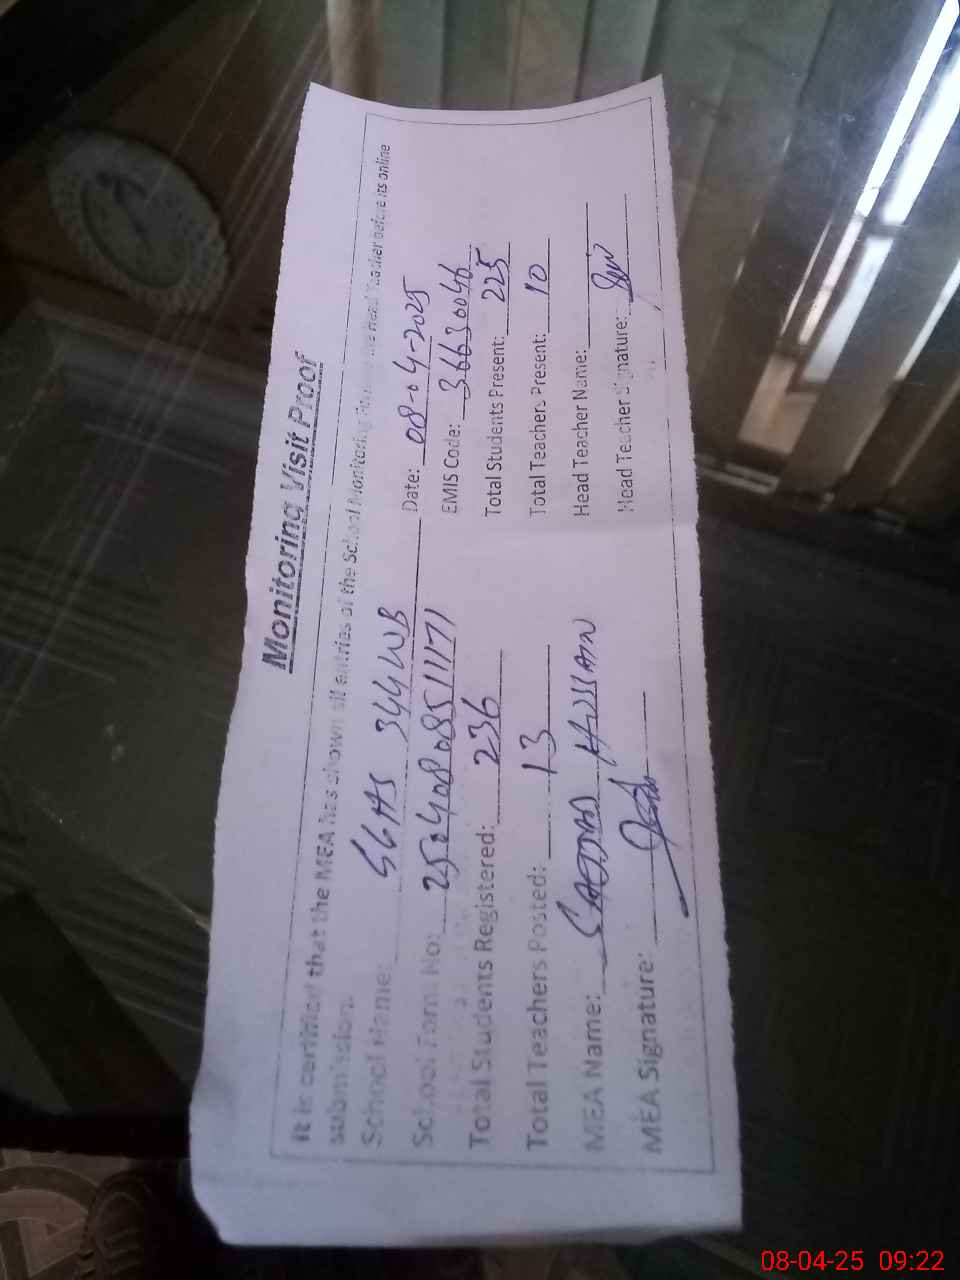 Monitoring Visit Proof
It is certified that the MEA has shown all entries of the School Monitoring Form to the Head Teacher before its online
submission.
School Name: GGHS 344WB Date: 08-04-2025
School Form No: 25040808511171 EMIS Code: 36630046
Total Students Registered: 236 Total Students Present: 225
Total Teachers Posted: 13 Total Teachers Present: 10
MEA Name: SAJJAD HUSSAIN Head Teacher Name:
MEA Signature: Head Teacher Signature:
08-04-25 09:22